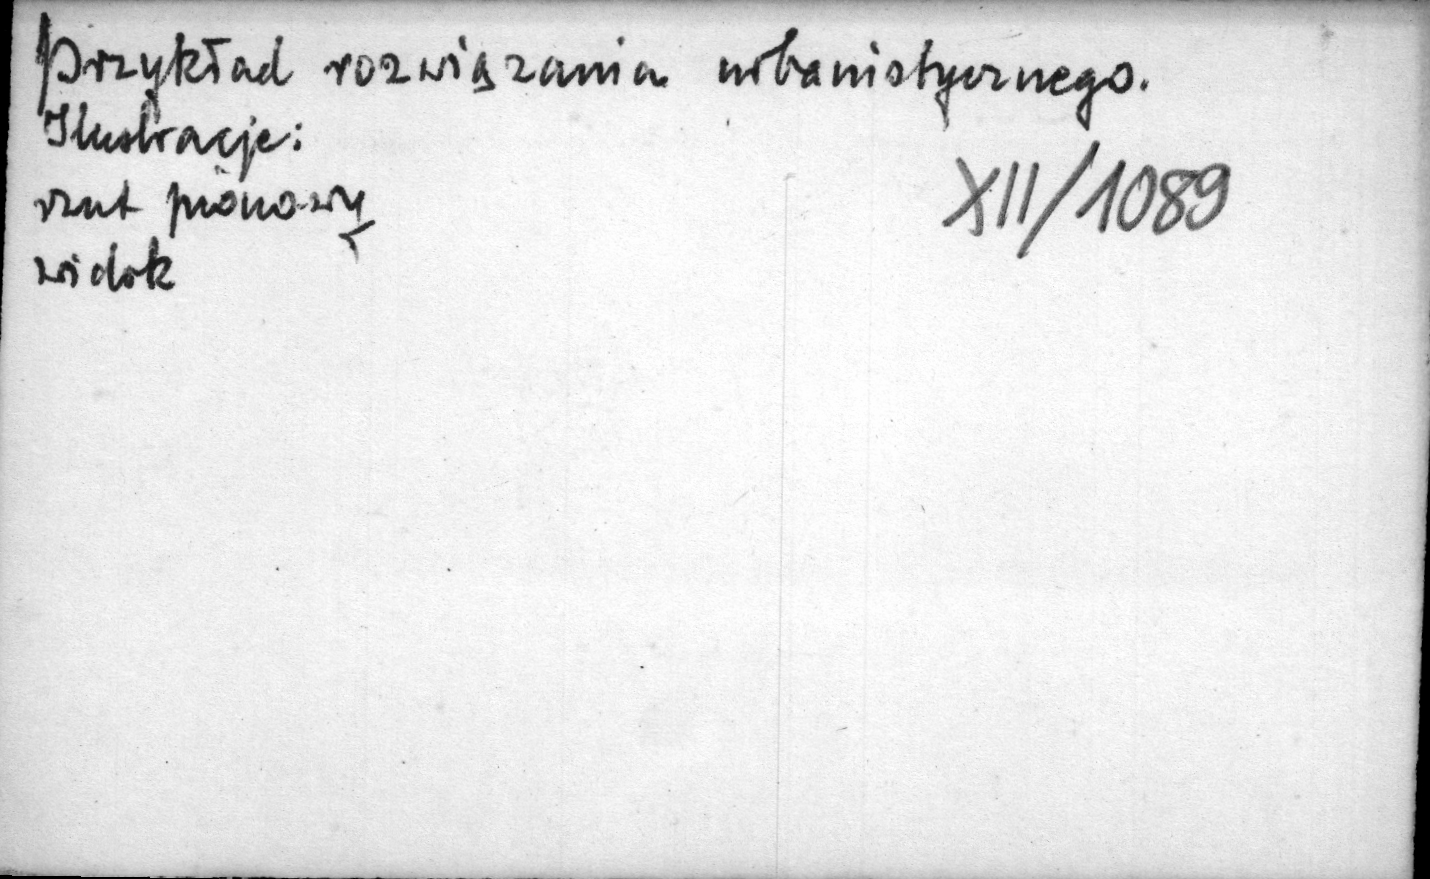 Przykład rozwiązania urbanistycznego.
Ilustracje:
rzut pionowy
widok
XII/1089